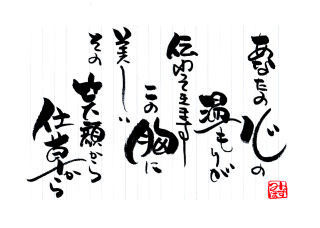 あなたの
心の
温もりが
伝わってきます
この
胸に
美しい
その
笑顔から
仕草から